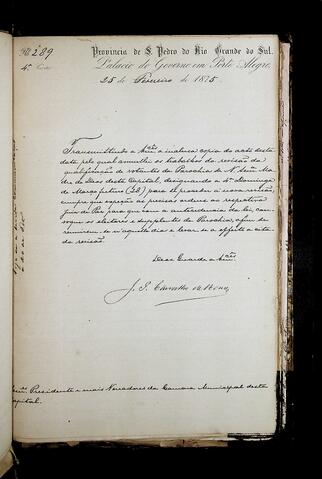 Nº 289
Provincia de S. Pedro do Rio Grande do Sul.
4ª Secção
Palacio do Governo em Porto Alegre,
25 de Fevereiro de 1875
Transmittindo a Vmcês a inclusa copia do acto desta
data pelo qual annullei os trabalhos da revisão da
qualificação de votantes da Parochia de N. Senra Ma-
dre de Deos desta Capital, designando a 4ª Dominga
de Março futuro (28) para se proceder a nova revisão,
cumpre que expeção as precisas ordens ao respectivo
Juiz de Paz para que com a antecedencia da lei, con-
voque os eleitores e supplentes da Parochia, afim de
reunirem-se n'aquelle dia e levar-se a effeito a dita
da revisão.
Deos Guarde a Vmcês
J. P. Carvalho de Moraes
Snrs. Presidente e mais Vereadores da Camara Municipal desta
Capital.